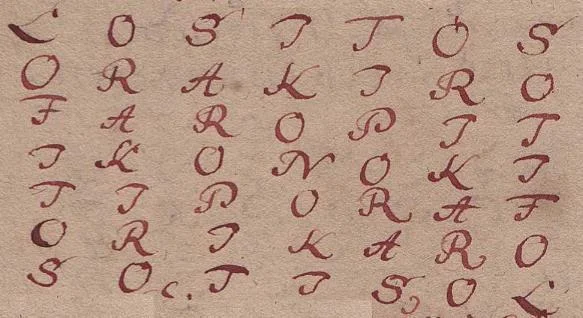 L O S I T O S
O R A K I R O
F A R O P I T
I K O N O K I
T I P O R A F
O R I K A R O
S O T I S O L